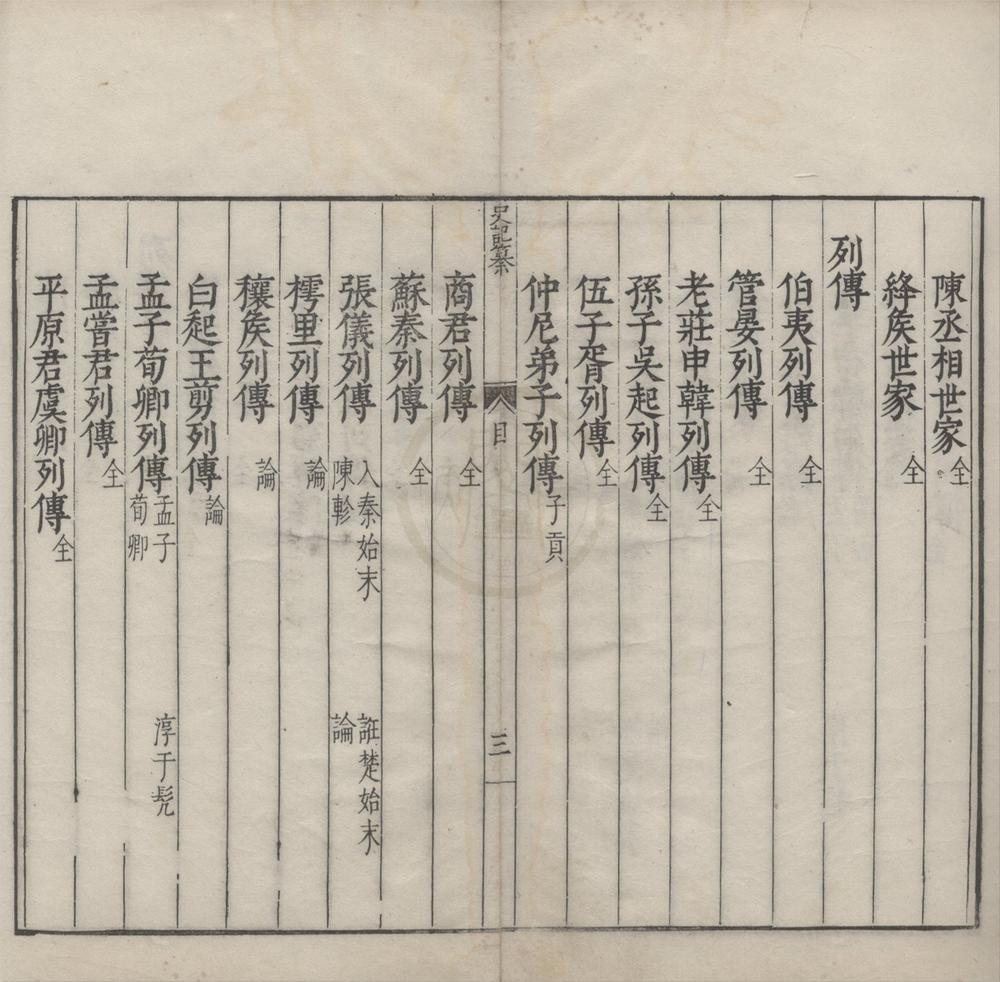 陳丞相世家 全
絳侯世家 全
列傳
伯夷列傳 全
管晏列傳 全
老莊申韓列傳 全
孫子吳起列傳 全
伍子胥列傳 全
仲尼弟子列傳 子貢
史記纂 目 三
商君列傳 全
蘇秦列傳 全
張儀列傳 入秦始末 誑楚始末 陳軫 論
樗里列傳 論
穰侯列傳 論
白起王剪列傳 論
孟子荀卿列傳 孟子 淳于髡 荀卿
孟嘗君列傳 全
平原君虞卿列傳 全